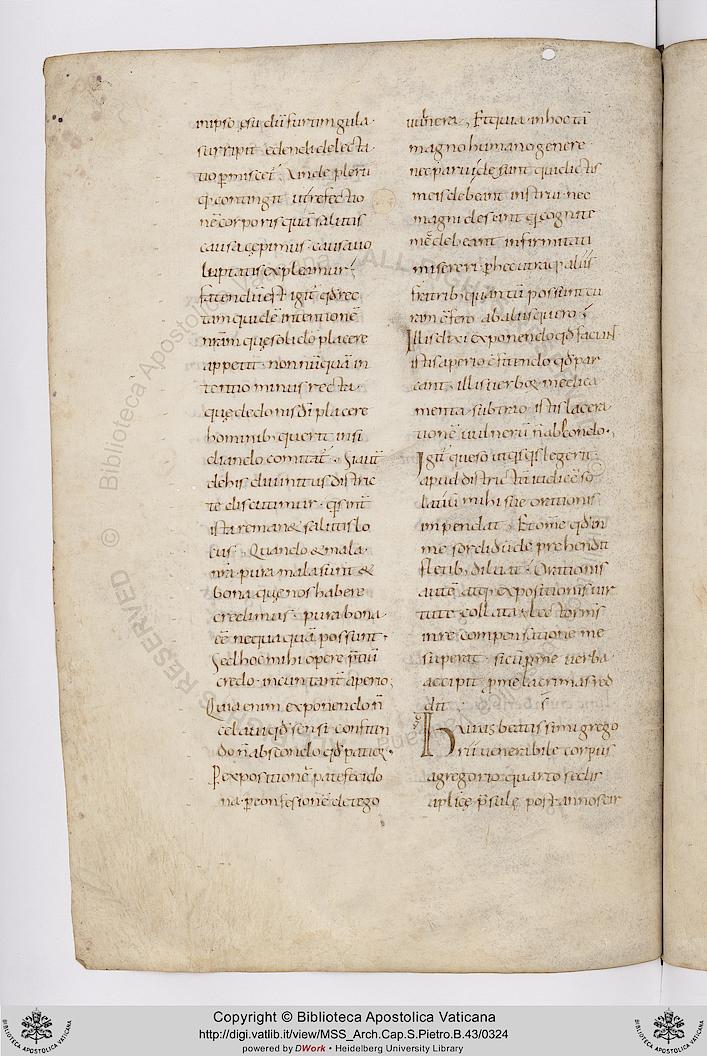 in ipso esu dũ furtim gula
surripit edendi delecta
tio p̃miscet͛. Unde pleru
q; contingit ut refectio
nẽ corporis quã salutis
causa cepimus. causa uo
luptatis expleamur;
fatendũ est igit͛ qđ rec
tam quidẽ intentionẽ
nrãm que soli dõ placere
appetit. non nũquã in
tentio minus recta.
que de donis dī placere
hominib; querit insi
diando comitat͛. Si aut̃
de his diuinitus distric
te discutimur. quis int̃
ista remanet salutis lo
cus. Quando & mala
nrã pura mala sunt &
bona que nos habere
credimus. pura bona
eẽ nequaquã possunt.
Sed hoc mihi opere p̃tiũ
credo. incunctant̃ aperio.
Quia enim exponendo ñ
celaui qđ sensi confiten
do ñ abscondo qđ patior.
P̱ expositionẽ patefeci do
na. per confesionẽ detego
uulnera. Et quia in hoc tã
magno humano genere
nec parui desunt qui dictis
meis debeant instrui. nec
magni desunt q̣ cognite
mẽ debeant infirmitati
misereri. p̱ hec utraq; aliis
fratrib; quantũ possum cu
ram c̃fero ab aliis quero;
Illis dixi exponendo qđ faciant
istis aperio c̃fitendo qđ par
cant. illis uerbor̨ medica
menta subtrao. istis lacera
tionẽ uulnerũ ñ abscondo.
Igit͛ queso ut q̣sq̣s legerit
apud districtũ iudicẽ so
latiũ mihi sue orationis
impendat. Et omẽ qđ in
me sordidũ deprehendit
fletib; diluat. Orationis
autẽ atq; expositionis uir
tute collata. lector m̃s
in re compensatione me
superat. si cũ p̱ me uerba
accipit p̱ me lacrimas red
dit.
Huius beatissimi grego
rii uenerabile corpus
a gregorio quarto sedis
aplice p̃sule post annos cir
Copyright © Biblioteca Apostolica Vaticana
http://digi.vatlib.it/view/MSS_Arch.Cap.S.Pietro.B.43/0324
powered by DWork • Heidelberg University Library